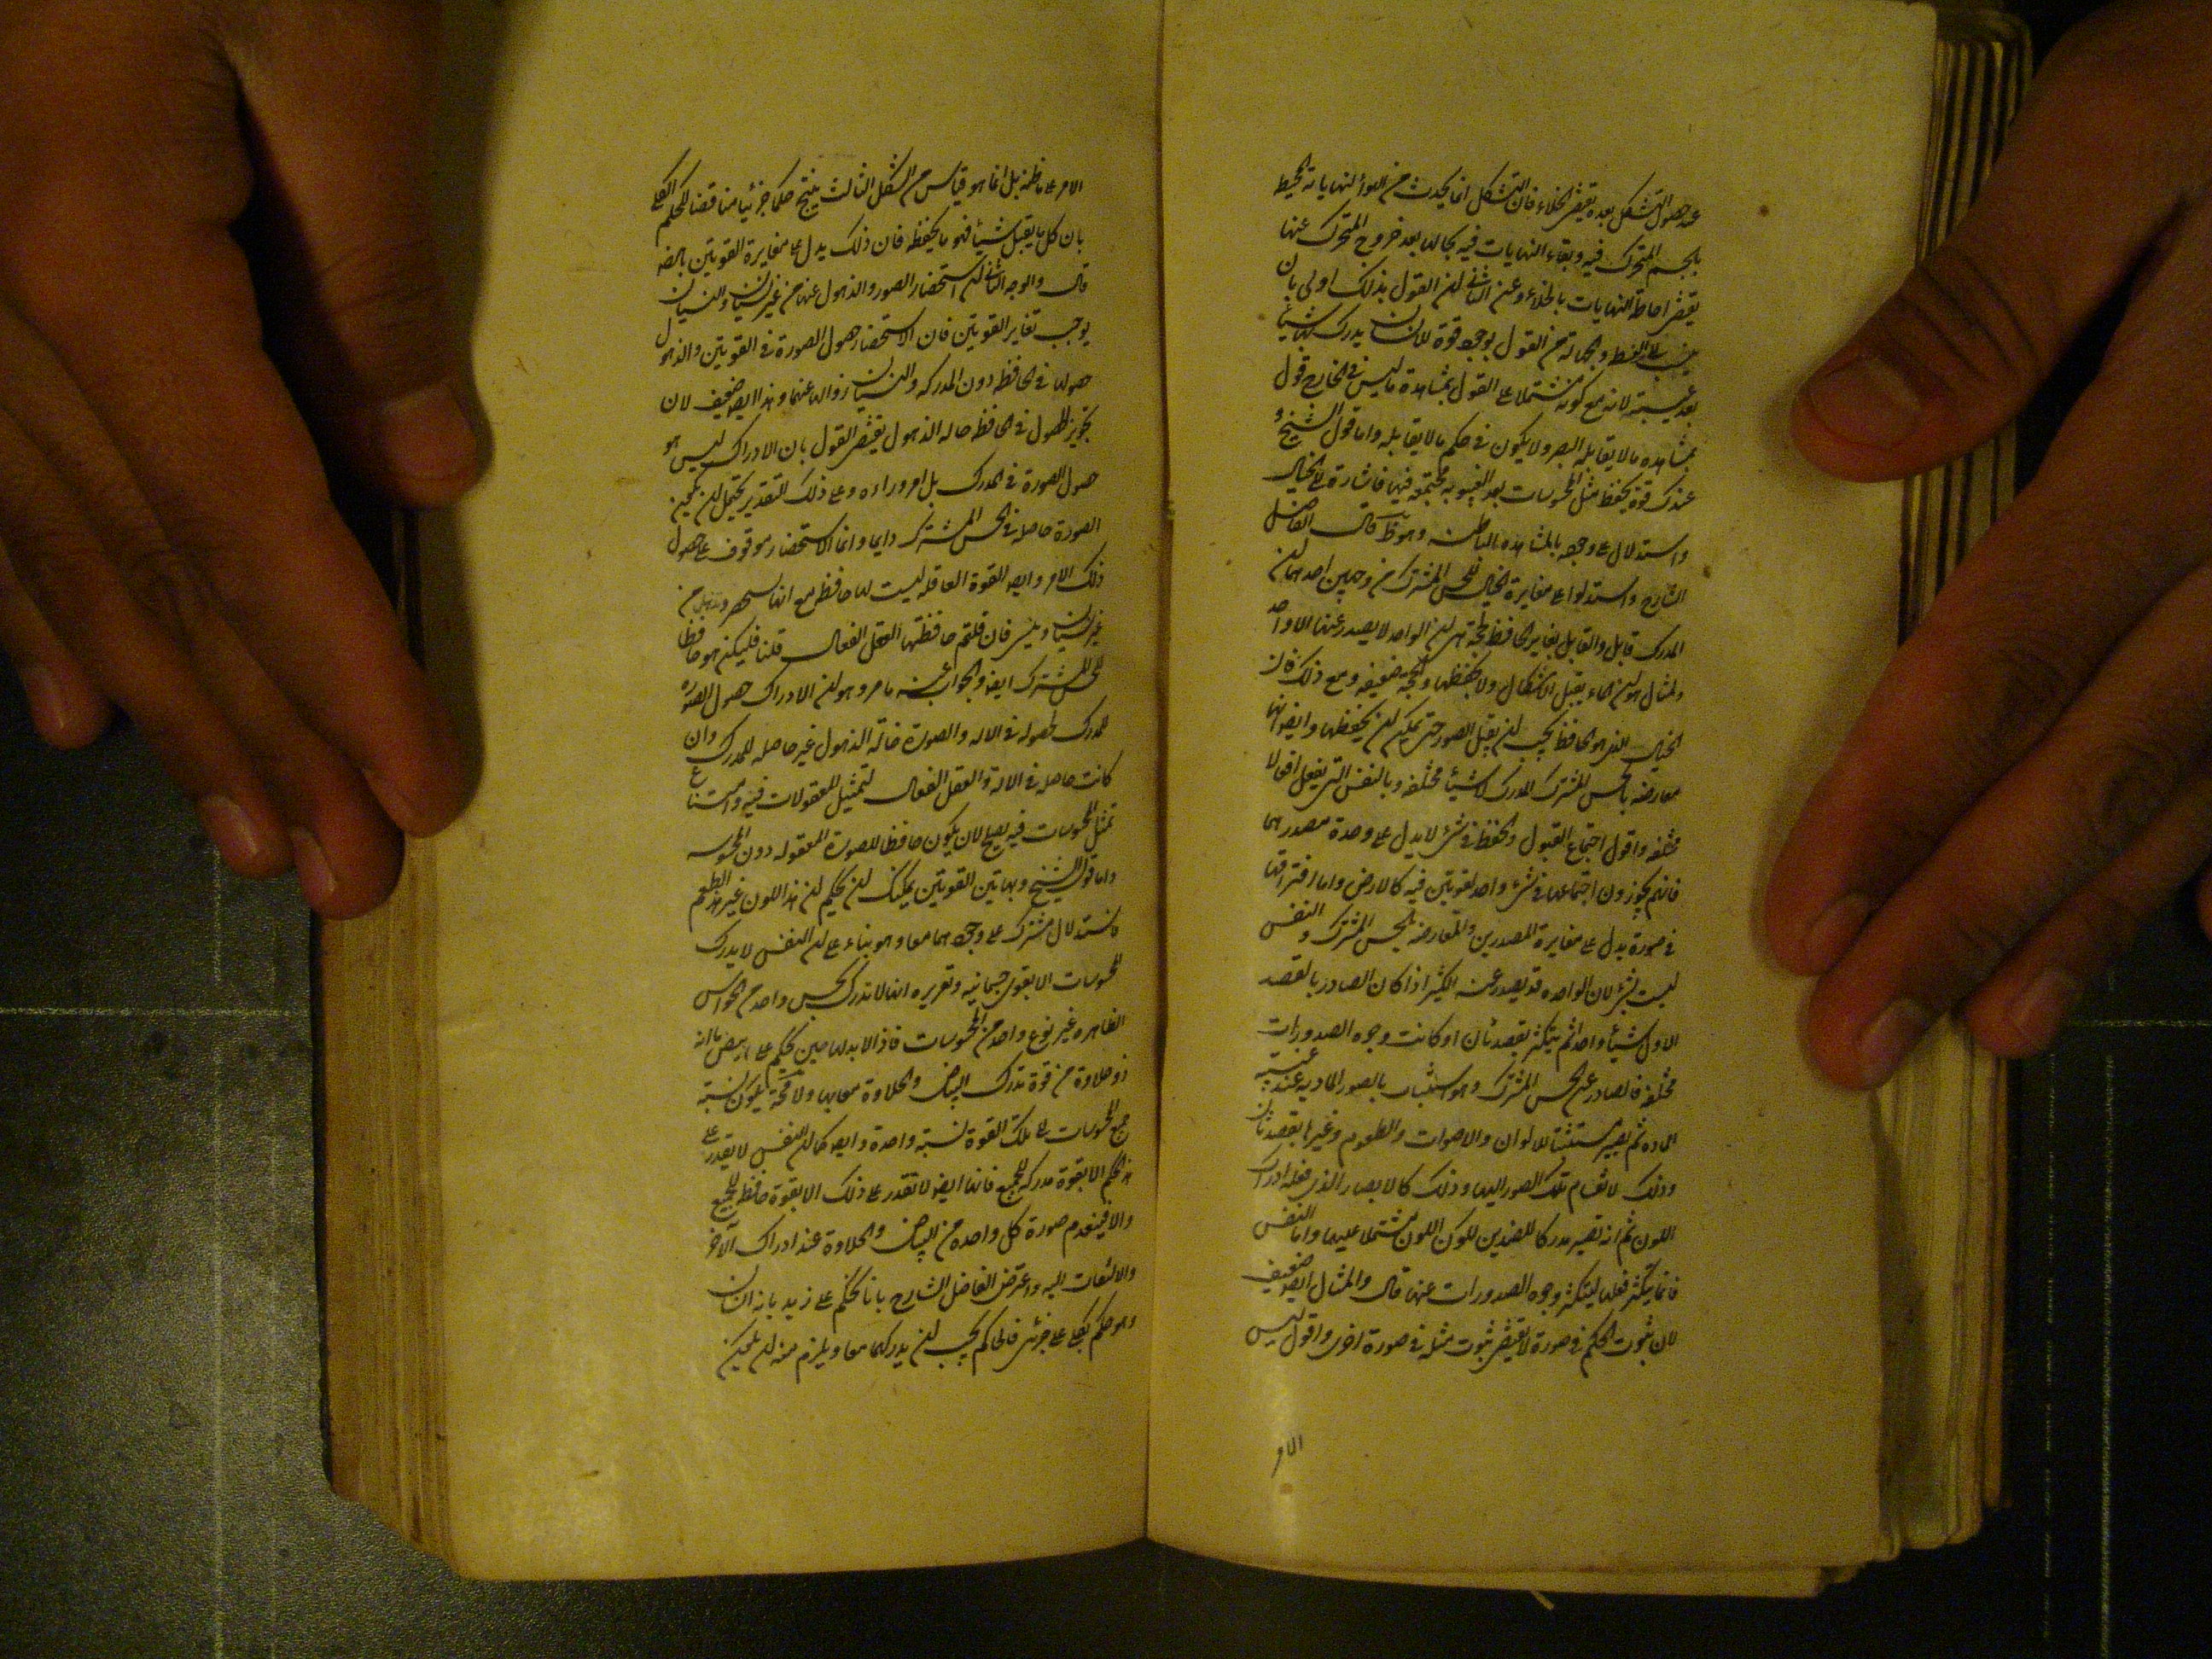 عند حصول التشكل بعده يقتضى الخلاء فان التشكل انما يحدث من الهواء لنهاياته المحيط
بالجسم المتحرك فيه وبقاء النهايات فيه بحالها بعد خروج المتحرك عنها
يقتضى احاطة النهايات بالخلاء وعن الثانى ان القول بذلك اولى بان
ينسب الى السفسطه والجهاله من القول بوجود قوة للانسان يدرك بها شيئا
بعد غيبته لانه مع كونه مشتملا على القول بمشاهدة ما ليس فى الخارج قول
بمشاهده ما لا يقابله البصر ولا يكون فى حكم ما لا يقابله واما قول الشيخ و
عندك قوة تحفظ مثل المحسوسات بعد الغيبوبه مجتمعه فيها فاشارة الى الخيال
واستدلال على وجوده بالمشاهده الباطنه وهو ظ قال الفاضل
الشارح واستدلوا على مغايرة الخيال للحس المشترك من وجهين احدهما ان
المدرك قابل والقابل يغاير الحافظ لحجة هى ان الواحد لا يصدر عنه الا واحد
ولمثال هو ان الماء يقبل الاشكال ولا يحفظها والحجة ضعيفه ومع ذلك فان
الخيال الذى هو الحافظ يجب ان يقبل الصور حتى يمكن ان يحفظها وايضا انها
معارضه بالحس المشترك المدرك لاشياء مختلفه وبالنفس التى يفعل افعالا
مختلفه واقول اجتماع القبول والحفظ فى شئ لا يدل على وحدة مصدرهما
فانهم يجوزون اجتماعهما فى شئ واحد لقوتين فيه كالارض واما افتراقهما
فى صورة يدل على مغايرة المصدرين والمعارضه بالحس المشترك والنفس
ليست بشئ لان الواحد قد يصدر عنه الكثير اذا كان الصادر بالقصد
الاول شيئا واحدا ثم يتكثر بقصد ثان او كانت وجوه الصدورات
مختلفه فالصادر عن الحس المشترك هو استثبات بالصور الماديه عند غيبة
الماده ثم يصير مستثبتا للالوان والاصوات والطعوم وغيرها بقصد ثان
وذلك لانقسام تلك الصور اليها وذلك كالابصار الذى فعله ادراك
اللون ثم انه يصير مدركا للضدين لكون اللون مشتملا عليهما واما النفس
فانما يتكثر فعلها لتكثر وجوه الصدورات عنها قال والمثال ايضا ضعيف
لان ثبوت الحكم فى صورة لا يقتضى ثبوت مثله فى صورة اخرى واقول ليس
الامر
الامر على ما ظنه بل انما هو قياس من الشكل الثالث ينتج حكما جزئيا مناقضا للحكم الكلى
بان كل ما يقبل شيئا فهو ما يحفظه فان ذلك يدل على مغايرة القوتين بالضه
قال والوجه الثانى ان استحضار الصور والذهول عنها من غير نسيان والنسيان
يوجب تغاير القوتين فان الاستحضار حصول الصورة فى القوتين والذهول
حصولها فى الحافظه دون المدركه والنسيان زوالها عنهما وهذا ايضا ضعيف لان
تجويز الحصول فى الحافظ حاله الذهول يقتضى القول بان الادراك ليس هو
حصول الصورة فى المدرك بل امر وراءه وعلى ذلك التقدير يحتمل ان يكون
الصورة حاصله فى الحس المشترك دايما وانما الاستحضار موقوف على حصول
ذلك الامر وايضا القوة العاقله ليست لها حافظ مع انها تستحضر وتذهل من
غير نسيان وينسى فان قلتم حافظتها العقل الفعال قلنا فليكن هو حافظا
للحس المشترك ايضا والجواب عنه ما مر وهو ان الادراك حصول الصوره
للمدرك لحصوله فى الاله والصورة حالة الذهول غير حاصله للمدرك وان
كانت حاصله فى الاله والعقل الفعال لتمثيل المعقولات فيه وامتناع
تمثل المحسوسات فيه يصلح لان يكون حافظا للصورة المعقوله دون المحسوسه
واما قول الشيخ وبهاتين القوتين يمكنك ان تحكم ان هذا اللون غير هذا الطعم
فاستدلال مشترك على وجودهما معا وهو بناء على ان النفس لا يدرك
المحسوسات الا بقوى جسمانيه وتقريره انها لا تدرك بحس واحد من الحواس
الظاهره غير نوع واحد من المحسوسات فاذا لا بد لها حين تحكم على ابيض بانه
ذو حلاوة من قوة تدرك البياض والحلاوة معا بها ولا محة يكون نسبة
جميع المحسوسات الى تلك القوة نسبة واحدة وايضا كما ان النفس لا يقدر على
هذا الحكم الا بقوة مدركه للجميع فانها ايضا لا تقدر على ذلك الا بقوة حافظه للجميع
والا فينعدم صورة كل واحده من البياض والحلاوة عند ادراك الآخر
والالتفات اليه واعترض الفاضل الشارح بانا نحكم على زيد بانه انسان
وهو حكم بكلى على جزئى فالحاكم يجب ان يدركهما معا ويلزم منه ان يكون